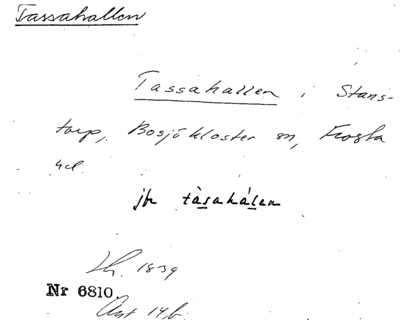 Tassahallen
Tassahallen i Stans-
torp, Bosjökloster sn, Frosta
hd.
jfr tàsahálen
Lh. 1839
Nr 6810.
Ant 14 b.